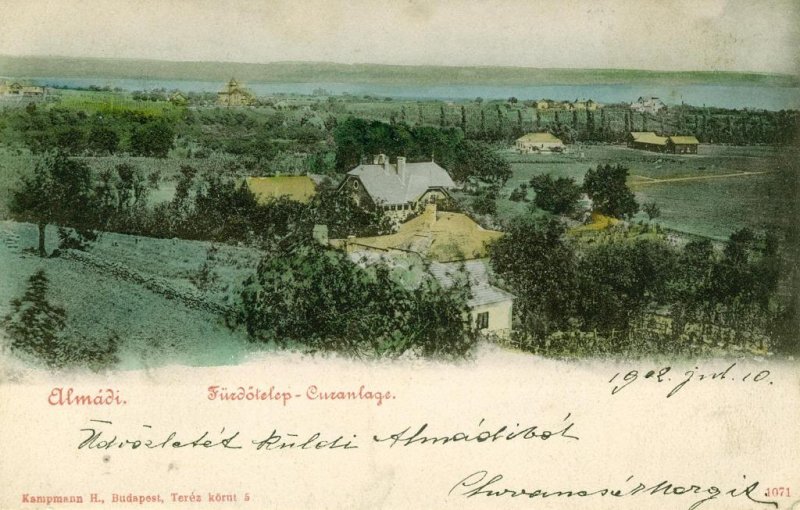 Almádi.
Fürdőtelep-Curanlage.
1902. jul 10.
Üdvözletét küldi Almádiból
Margit
Kampmann H., Budapest, Teréz körut 5
1071